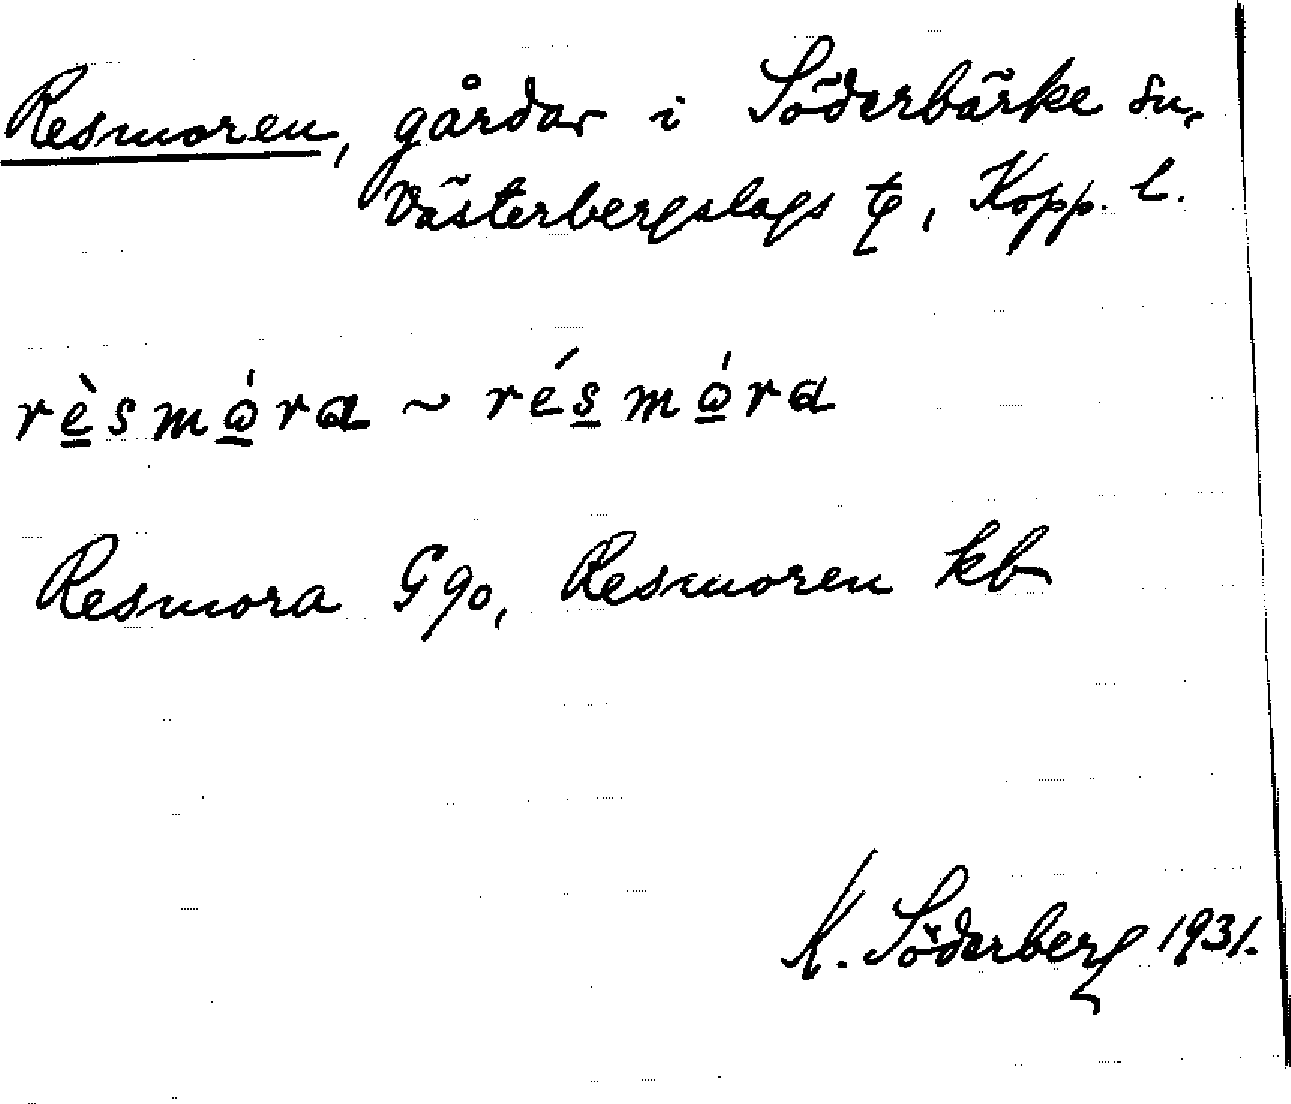 Resmoren, gårdar i Söderbärke sn,
Västerbergslags tg, Kopp. l.
rèsmóra ~ résmóra
Resmora Ggo, Resmoren kb
K. Söderberg 1931.